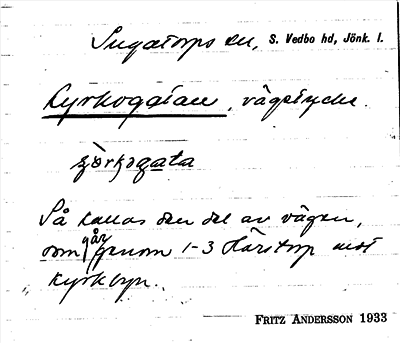 Sugatorps sn, S. Vedbo hd, Jönk. l.
Kyrkogatan, vägstycke.
Så kallas den del av vägen,
som går genom 1-3 Härstorp mot
kyrkbyn.
FRITZ ANDERSSON 1933